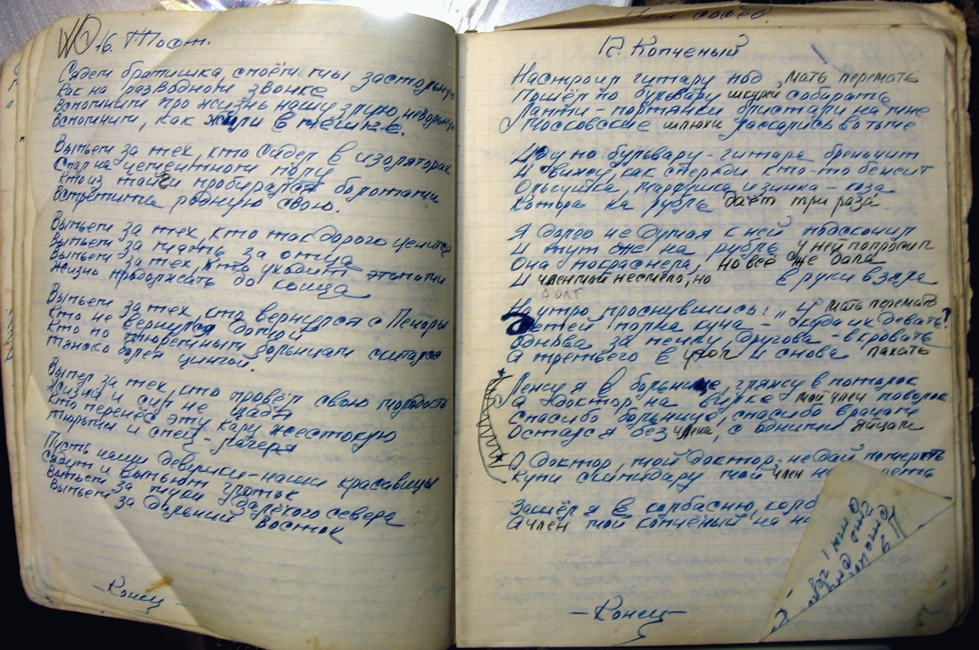 16. Тост.
Сядем братишка, споём мы застольную
Как на разводном звонке
Вспомним про жизнь нашу злую, невольную
Вспомним, как жили в тюрьме.
Выпьем за тех, кто сидел в изоляторах
Спал на цементном полу
Кто из тайги пробирался болотами
Встретить родную свою.
Выпьем за тех, кто так дорого ценится
Выпьем за мать, за отца
Выпьем за тех, кто уходит этапами
Жизнь продолжать до конца
Выпьем за тех, кто вернулся с Печоры
Кто не вернулся домой
Кто по тюремным больницам скитался
Тяжко болел цингой.
Выпьем за тех, кто провёл свою молодость
Жизни и сил не щадя
Кто перенёс эту кару жестокую
Тюрьмы и спец-лагеря
Пусть наши девушки-наши красавицы
Сядут и выпьют глоток
Выпьем за далёкого севера
Выпьем за Дальний Восток
-Конец-
Копченый
Настроил гитару под "мать перемать
Пошёл по бульвару шкуры собирать
Лапти-портянки блистали на мне
Московские шлюхи таскались во тьме
Иду по бульвару-гитара бренчит
И вижу, как спереди кто-то бежит
Ольгушка, и зинка-коза
Котора на рубль даёт три раза.
Я долго не думая к ней подскочил
И тут же на рубль у ней попросил
Она покраснела, но всё же дала
И член мой несмело, но в руки взяла
болт
На утро проснувшись: "и мать перемать
Детей полна куча - куда их девать?
Одного за печку, другова-в кровать
А третьего в угол и снова пахать
Лежу я в больнице, гляжу в потолок
А доктор на вилке мой член поволок
Спасибо больнице, спасибо врачам
Остался без члена, с одними яйцам
О доктор, мой доктор, не дай помереть
Купи скипидару мой член
Зашёл я в колбасню,
А член мой копчёный на
-Конец-